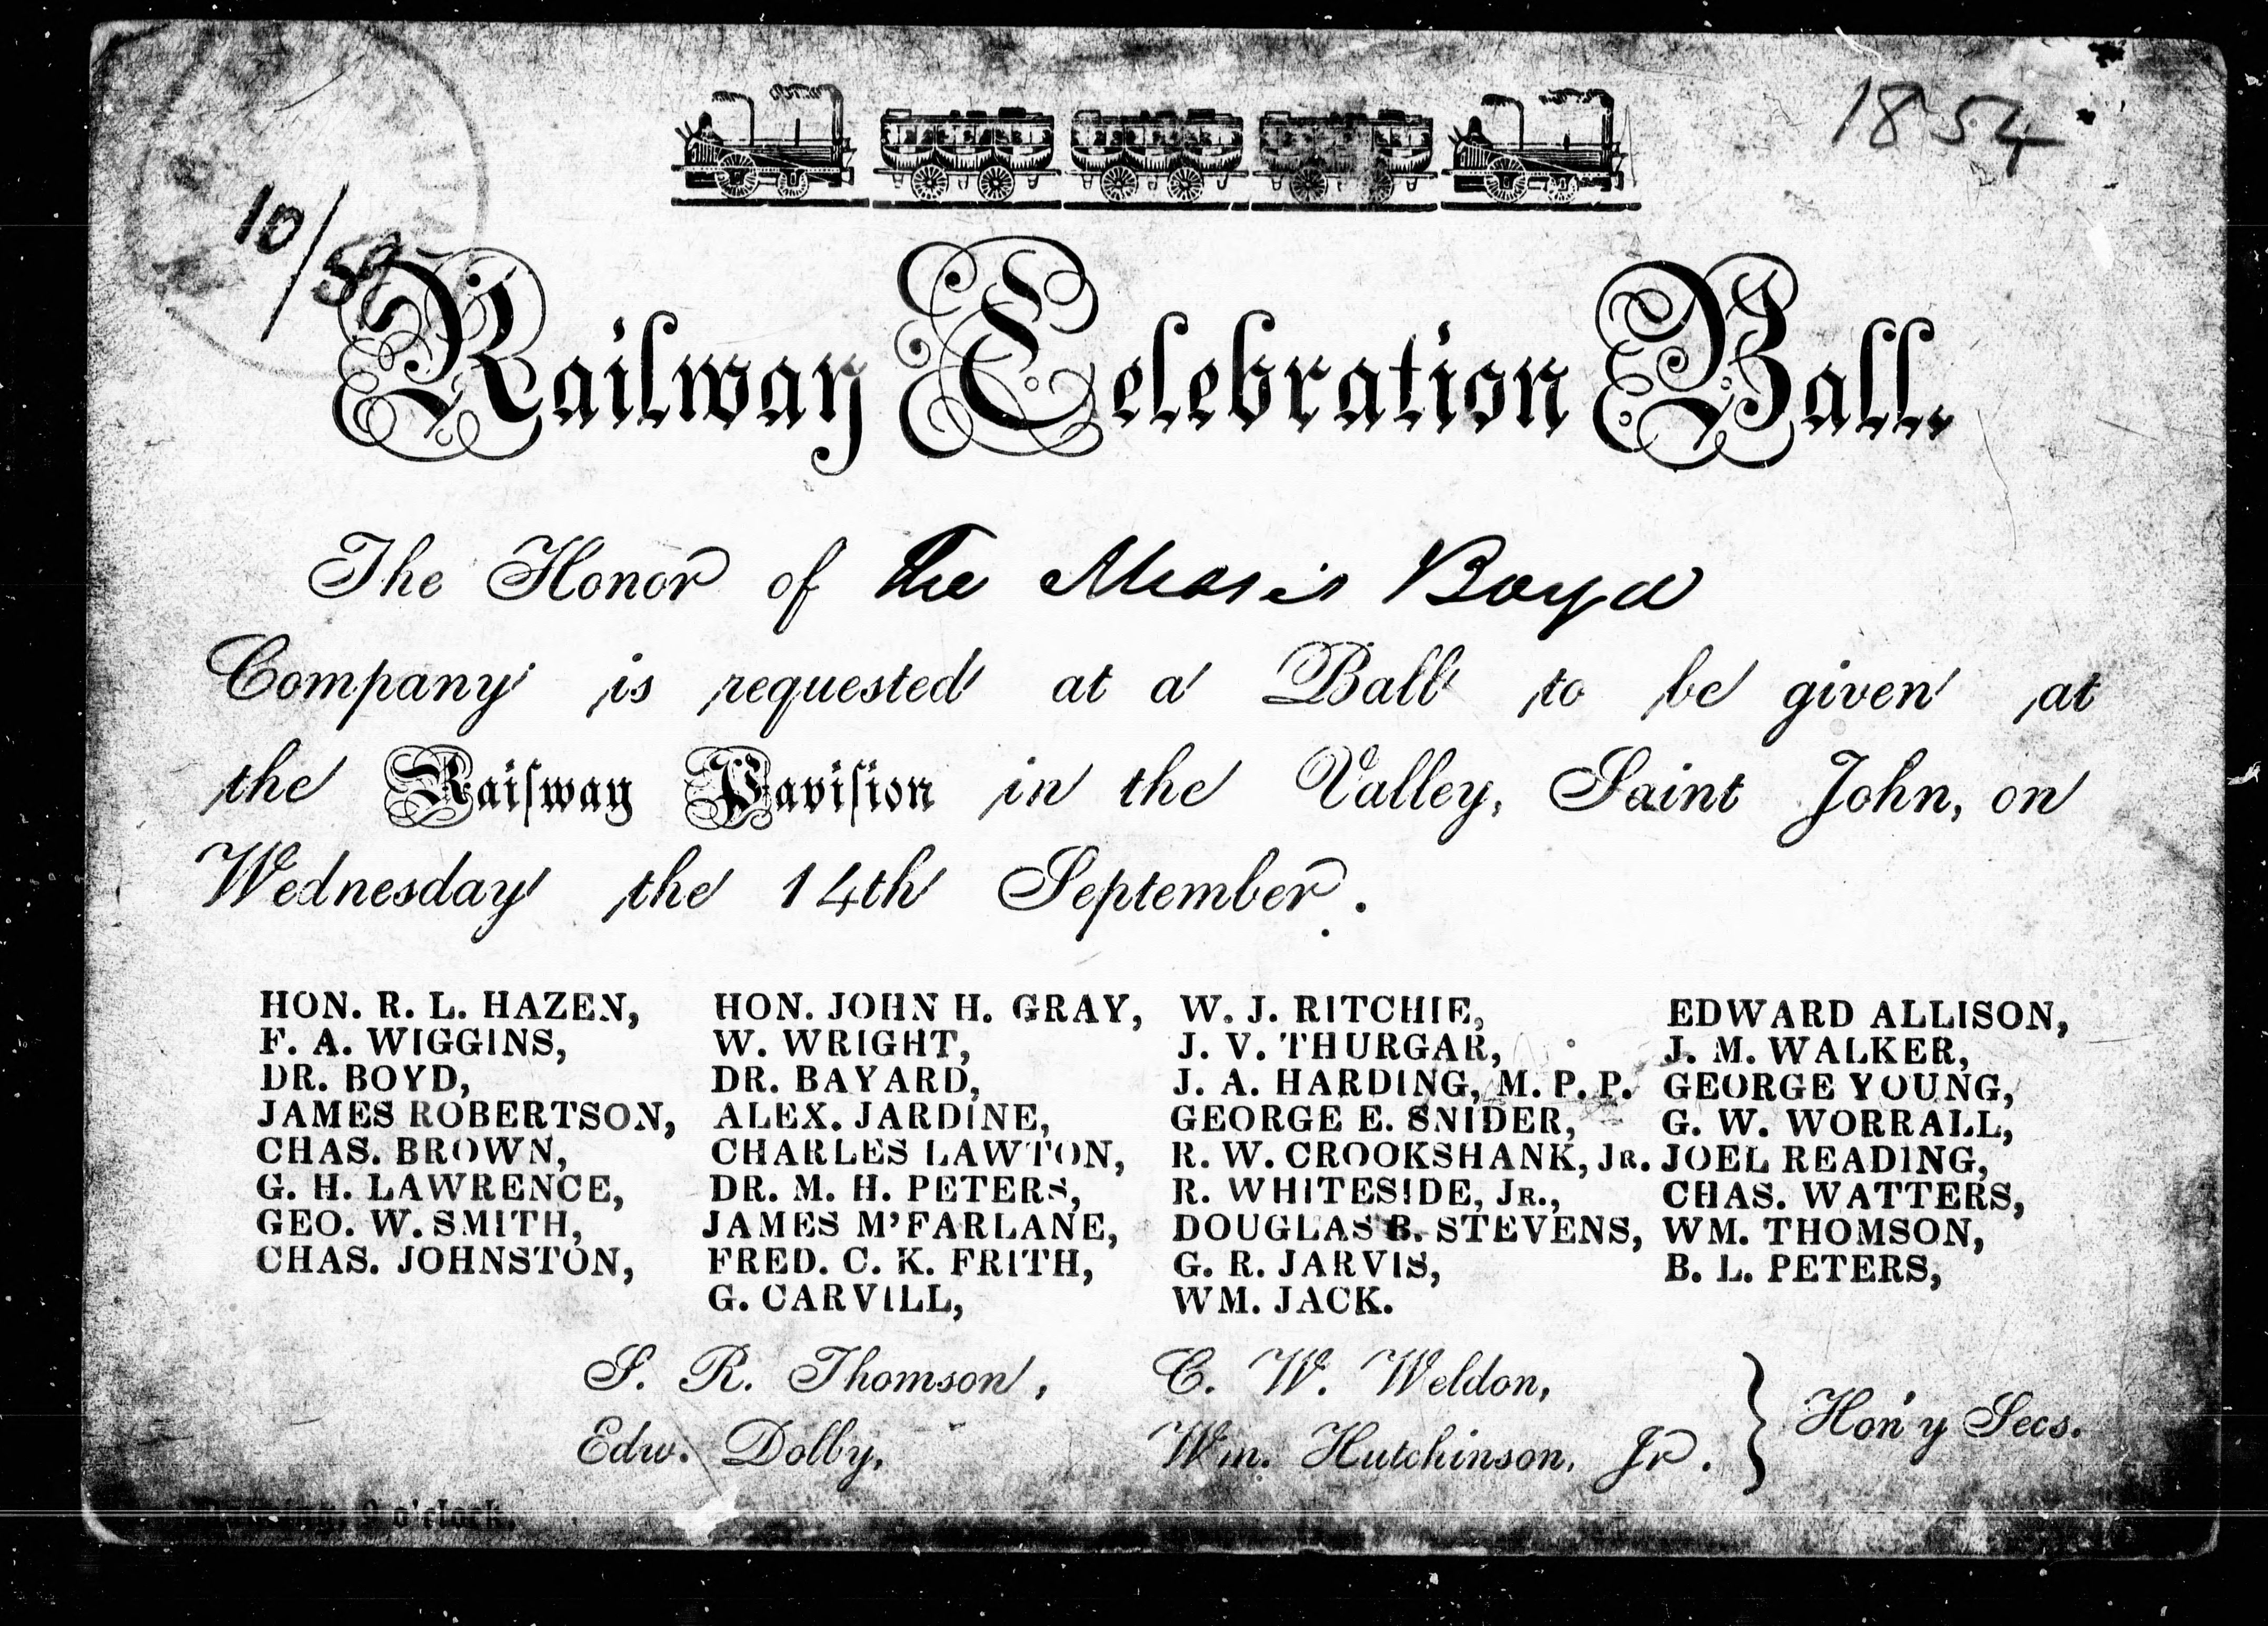 1854
10/52
Railway Celebration Ball.
The Honor of The Misses Boyd
Company is requested at a Ball to be given at
the Railway Pavilion in the Valley, Saint John, on
Wednesday the 14th September.
HON. R. L. HAZEN,
F. A. WIGGINS,
DR. BOYD,
JAMES ROBERTSON,
CHAS. BROWN,
G. H. LAWRENCE,
GEO. W. SMITH,
CHAS. JOHNSTON,
HON. JOHN H. GRAY,
W. WRIGHT,
DR. BAYARD,
ALEX. JARDINE,
CHARLES LAWTON,
DR. M. H. PETERS,
JAMES M'FARLANE,
FRED. C. K. FRITH,
G. CARVILL,
W. J. RITCHIE,
J. V. THURGAR,
J. A. HARDING, M. P. P.
GEORGE E. SNIDER,
R. W. CROOKSHANK, JR.
R. WHITESIDE, JR.,
DOUGLAS B. STEVENS,
G. R. JARVIS,
WM. JACK.
EDWARD ALLISON,
J. M. WALKER,
GEORGE YOUNG,
G. W. WORRALL,
JOEL READING,
CHAS. WATTERS,
WM. THOMSON,
B. L. PETERS,
S. R. Thomson,
Edw. Dolby,
C. W. Weldon,
Wm. Hutchinson, Jr.
Hon'y Secs.
9 o'clock.